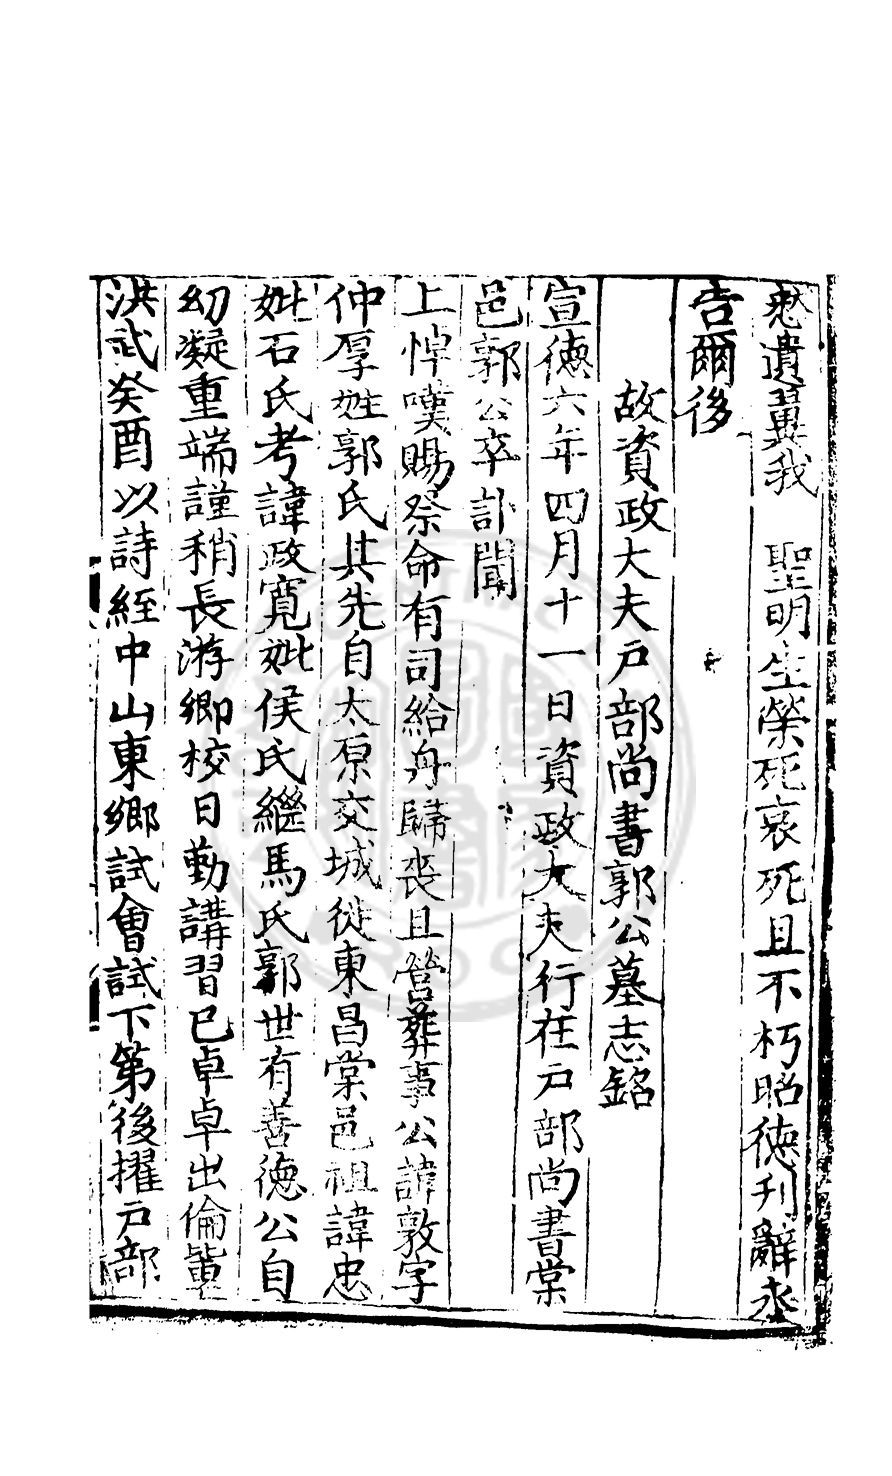 憖遺翼我　聖明生榮死哀死且不朽昭德刋辭永
告爾後
故資政大夫戶部尚書郭公墓志銘
宣德六年四月十一日資政大夫行在戶部尚書棠
邑郭公卒訃聞
上悼嘆賜祭命有司給舟歸喪且營葬事公諱敦字
仲厚姓郭氏其先自太原交城徙東昌棠邑祖諱忠
妣石氏考諱政寬妣侯氏繼馬氏郭世有善德公自
幼凝重端謹稍長游鄉校日勤講習已卓卓出倫輩
洪武癸酉以詩經中山東鄉試會試下第後擢戶部